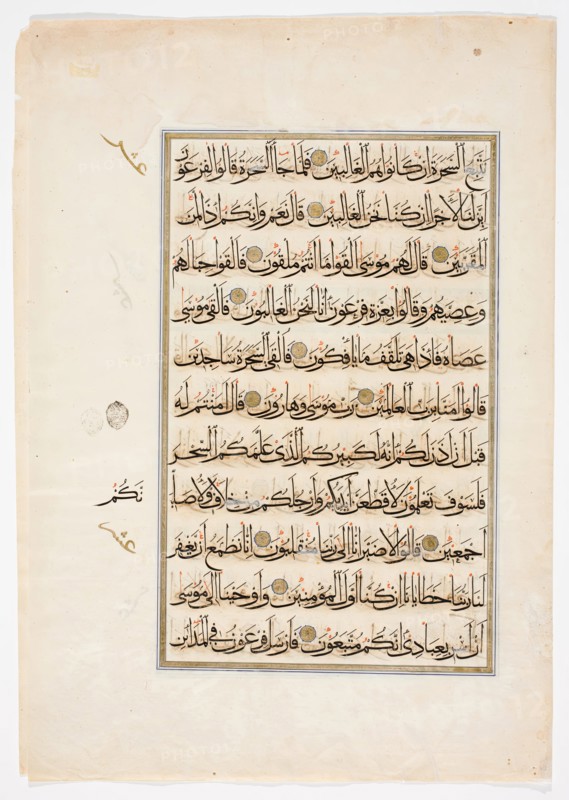 عشر
نتبع السحرة ان كانوا هم الغالبين فلما جا السحرة قالوا لفرعون
ائن لنا لأجرا ان كنا نحن الغالبين قال نعم وانكم اذا لمن
المقربين قال لهم موسى القوا ما انتم ملقون فالقوا حبالهم
وعصيهم وقالوا بعزة فرعون انا لنحن الغالبون فالقى موسى
عصاه فاذا هي تلقف ما يافكون فالقي السحرة ساجدين
قالوا امنا برب العالمين رب موسى وهارون قال امنتم له
قبل ان اذن لكم انه لكبيركم الذي علمكم السحر
فلسوف تعلمون لاقطعن ايديكم وارجلكم من خلاف ولاصلب
نكم
اجمعين قالوا لا ضير انا الى ربنا منقلبون انا نطمع ان يغفر
عشر
لنا ربنا خطايانا ان كنا اول المؤمنين واوحينا الى موسى
ان اسر بعبادي انكم متبعون فارسل فرعون في المداين